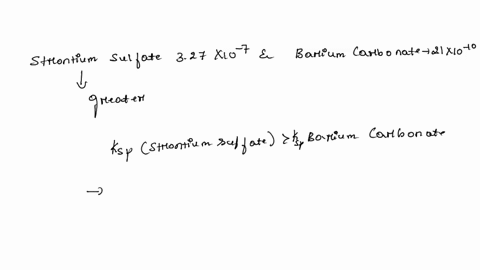 Strontium Sulfate 3.27 X10⁻⁷ & Barium Carbonate → 21 X10⁻¹⁰
↓
greater
Ksp (Strontium sulfate) > Ksp Barium Carbonate
→